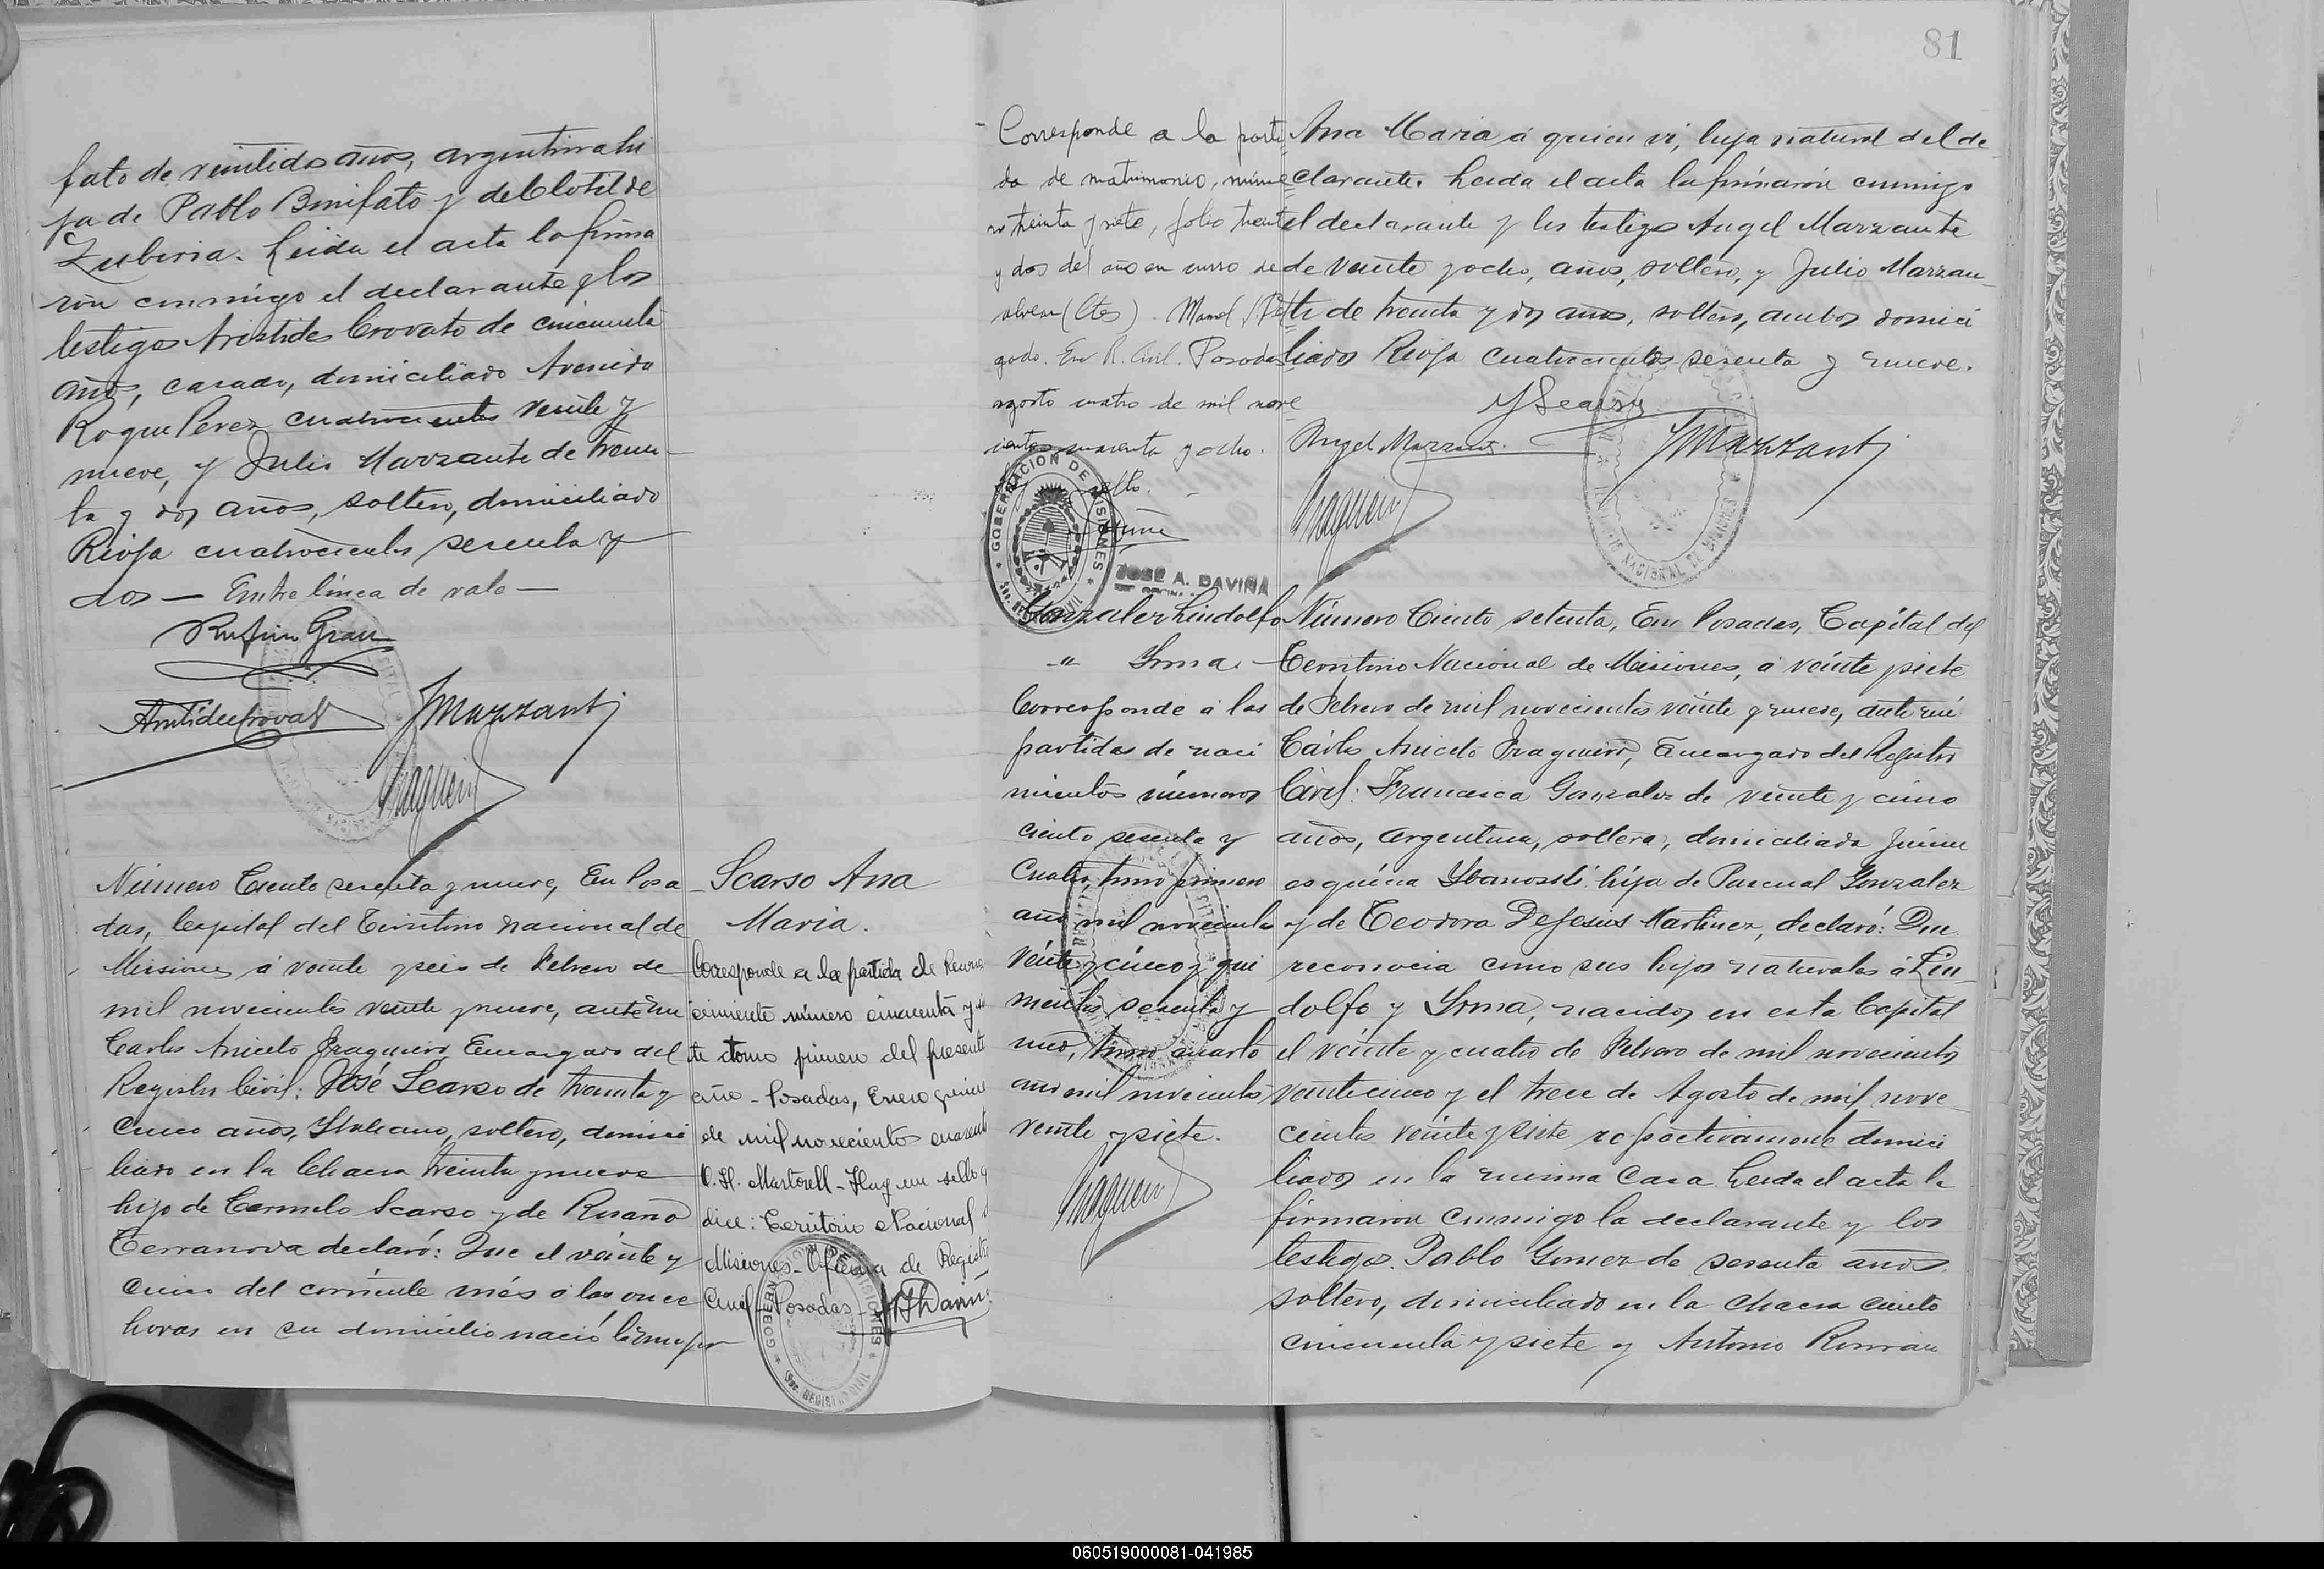 fato de veintidos años, argentina hi
ja de Pablo Bonifato y de Clotilde
Zubiria. Leida el acta la firma
ron conmigo el declarante y los
testigos Aristides Crovato de cincuenta
años, casado, domiciliado Avenida
Roque Perez cuatrocientos veinte y
nueve, y Julio Marzante de trein
ta y dos años, soltero, domiciliado
Rioja cuatrocientos sesenta y
dos — Entre línea de vale —
Rufino Grau
JMarzanti
Número Ciento sesenta y nueve, En Posa
das, Capital del Territorio Nacional de
Misiones á veinte y seis de Febrero de
mil novecientos veinte y nueve, ante mi
Carlos Aniceto Fragueiro, Encargado del
Registro Civil: José Scarso de treinta y
cinco años, Italiano, soltero, domici
liado en la Chacra treinta y nueve
hijo de Carmelo Scarso y de Rosario
Terranova declaró: Que el veinte y
cinco del corriente mes a las once
horas en su domicilio nació la mujer
Scarso Ana
Maria.
Corresponde a la partida de Recono
cimiento número cincuenta y
te tomo primero del presente
año - Posadas, Enero quince
de mil novecientos cuarenta
O. H. Martorell - Hay un sello q
dice: Territorio Nacional
Misiones - Oficina de Registro
Civil - Posadas -
GOBERNACION DE MISIONES
Sec. REGISTRO CIVIL
81
Corresponde a la parti
da de matrimonio, núme
ro treinta y siete, folio treint
y dos del año en curso de
alvear (Ctes).
gado. En R. Civil. Posadas
agosto cuatro de mil nove
cientos cuarenta y ocho.
sello.
GOBERNACION DE MISIONES
JOSE A. DAVIÑA
Ana Maria á quien vi, hija natural del de
clarante. Leida el acta la firmaron conmigo
el declarante y los testigos Angel Marzante
de veinte y ocho, años, soltero, y Julio Marzan
te de treinta y dos años, soltero, ambos domici
liados Rioja cuatrocientos sesenta y nueve.
JScarso
Angel Marzanti
JMarzanti
TERRITORIO NACIONAL DE MISIONES
Gonzalez Lindolfo
" Irma.
Corresponde á las
partidas de naci
mientos números
ciento sesenta y
cuatro, tomo primero
año mil novecientos
veinte y cinco y qui
nientos sesenta y
uno, tomo cuarto
año mil novecientos
veinte y siete.
Número Ciento setenta, En Posadas, Capital del
Territorio Nacional de Misiones, á veinte y siete
de Febrero de mil novecientos veinte y nueve, ante mi
Carlos Aniceto Fragueiro, Encargado del Registro
Civil: Francisca Gonzalez de veinte y cinco
años, argentina, soltera, domiciliada Junin
esquina hija de Pascual Gonzalez
y de Teodora DeJesus Martinez, declaró: Que
reconocia como sus hijos naturales á Lin
dolfo y Irma, nacidos en esta Capital
el veinte y cuatro de Febrero de mil novecientos
veinticinco y el trece de Agosto de mil nove
cientos veinte y siete respectivamente domici
liados en la misma casa. Leida el acta la
firmaron conmigo la declarante y los
testigos. Pablo Gomez de sesenta años
soltero, domiciliado en la chacra ciento
cincuenta y siete y Antonio Roman
060519000081-041985